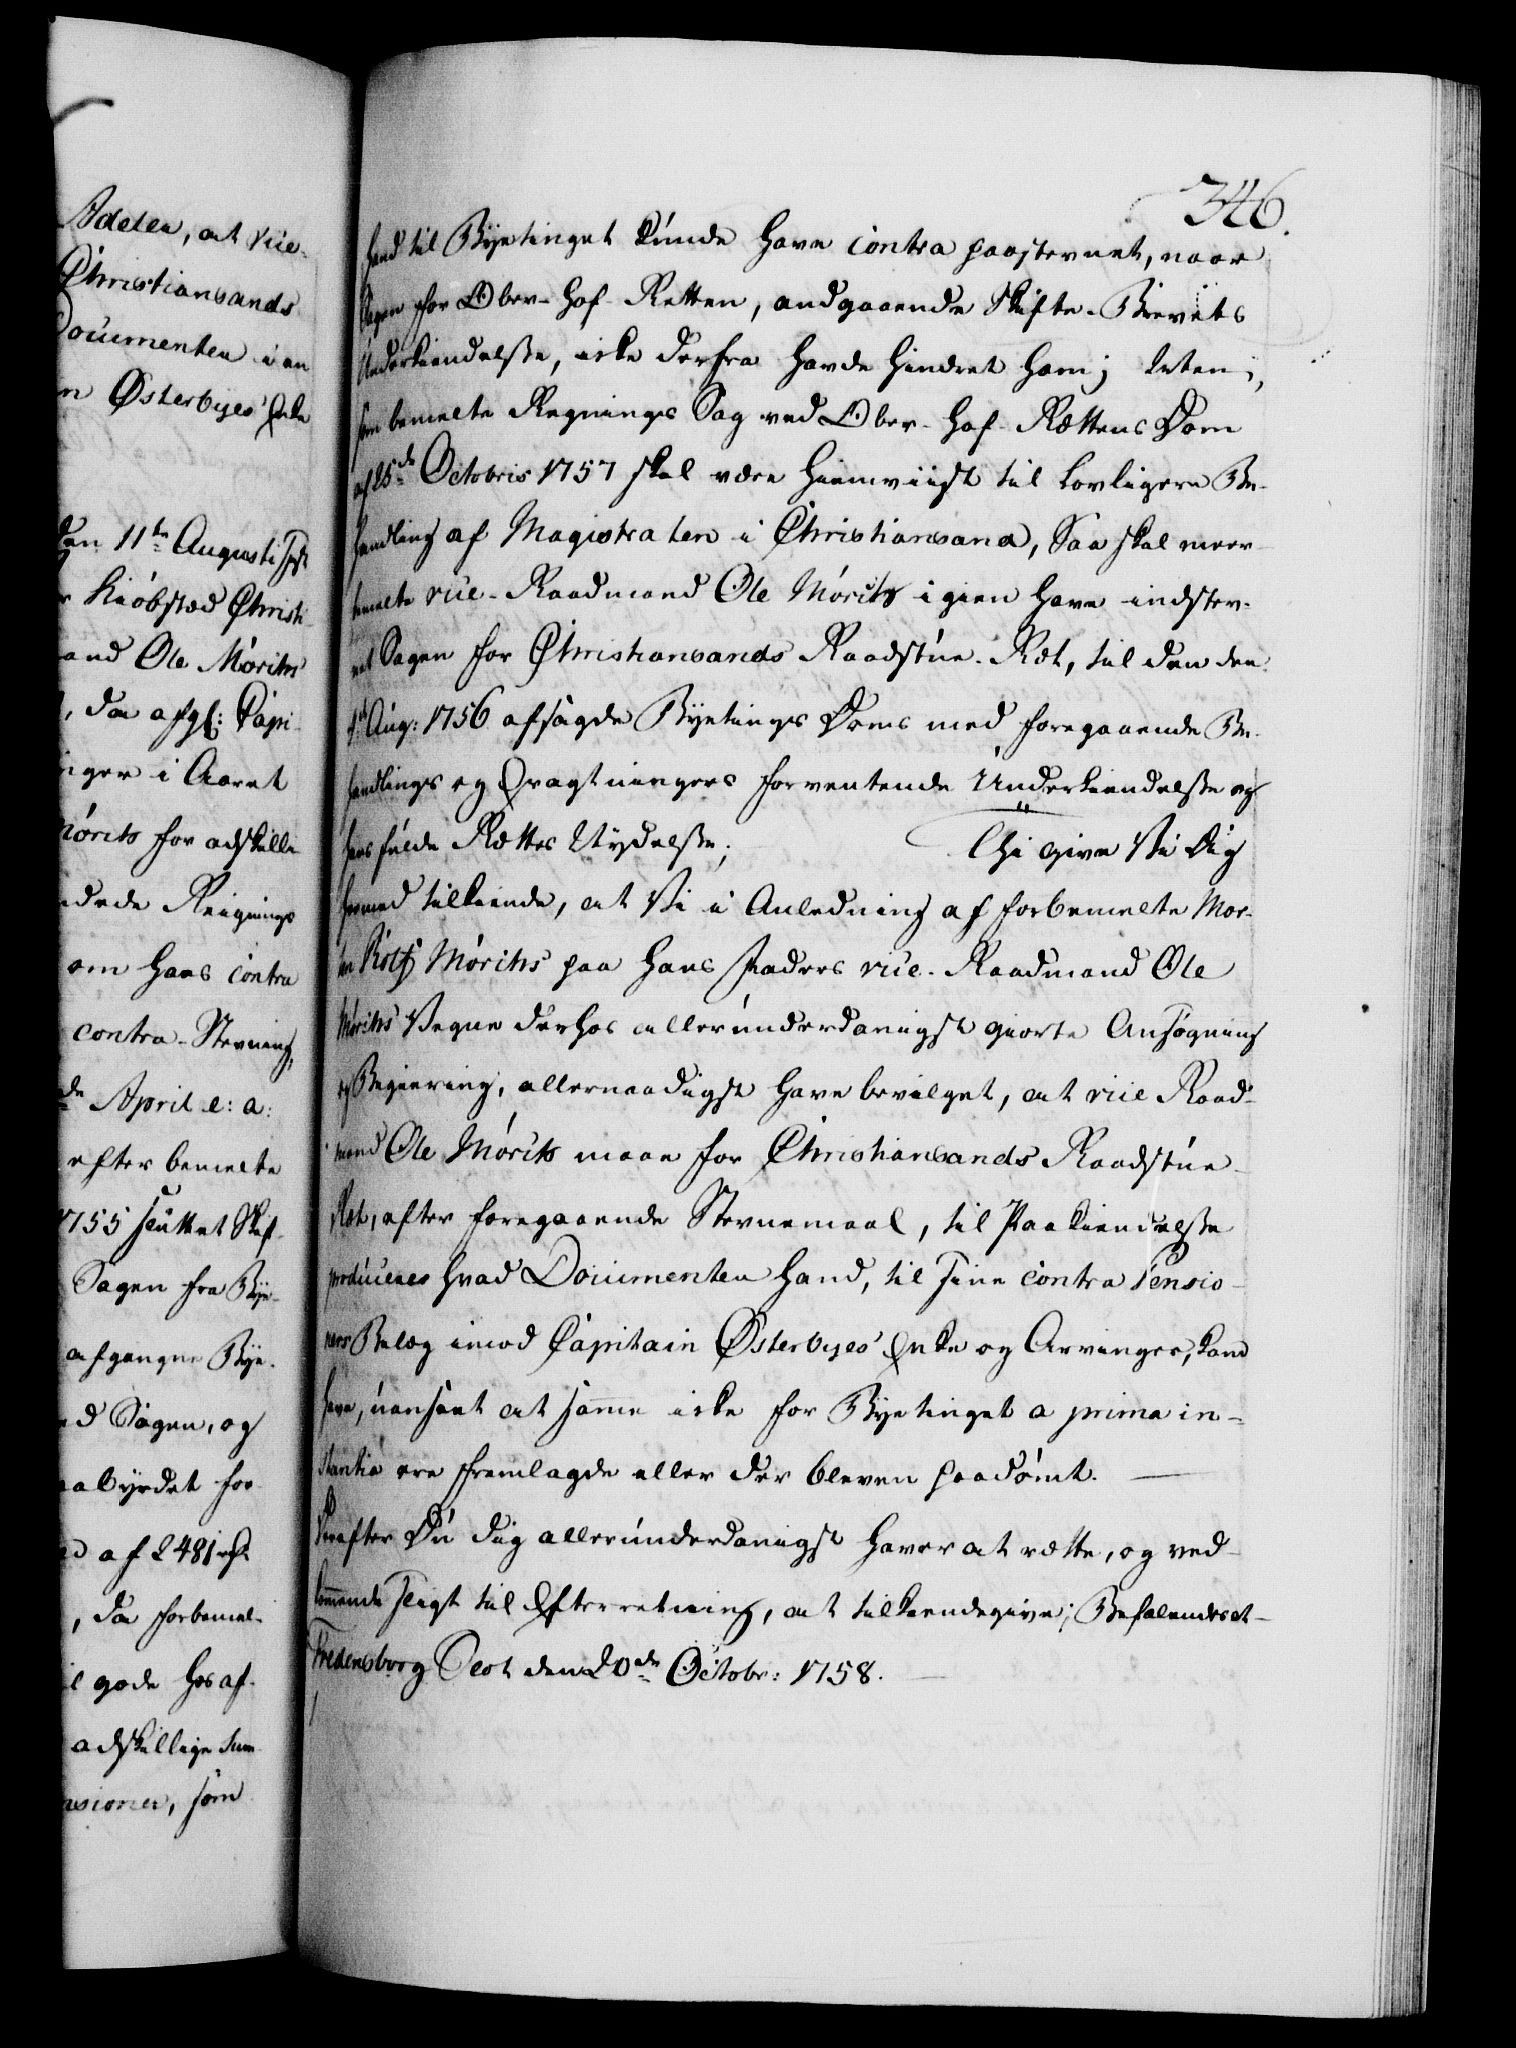 Adelen, at vice-
Christiansands
Documenter i en
n Østerbyes Enke
den 11te Augusti
r Kiöbstæd Christi-
and Ole Möritz
, da afg: Capi-
inger i Aaret
Möritz for adskilli
edede Reignings
om hans contra
contra-Stevning,
de April e: a:
efter bemelte
1755 sluttet Skif-
Sagen fra Bye-
afgangne Bye-
ed Sagen, og
aabyrdet for
af 2481 rd
, da forbemel-
il gode hos af-
adskillige Sum-
nsioner, som
346.
hand til Byetinget kunde have contra paastevnet, naar
Sagen for Ober-Hof-Retten, andgaaende Skifte-Brevets
Underkiendelsse, icke derfra havde hindret ham; Men,
som bemelte Regnings Sag ved Ober-Hof-Rettens Dom
af 25de Octobris 1757 skal være hiemviist til lovligere Be-
handling af Magistraten i Christiansand, Saa skal meer-
bemelte vice-Raadmand Ole Möritz igien have indstev-
net Sagen for Christiansands Raadstue-Ret, til den den
4de Aug: 1756 afsagde Byetings Doms med foregaaende Be-
handlings og Eragtningers forventende Underkiendelsse og
hans fulde Rettes Nydelsse;
Thi give Vi dig
hermed tilkiende, at Vi i Anledning af forbemelte Mor-
ten Rolf Möritz' paa hans Faders vice-Raadmand Ole
Möritz' Vegne derhos allerunderdanigst giorte Ansøgning
og Begiering, allernaadigst have bevilget, at vice Raad-
mand Ole Möritz maae for Christiansands Raadstue-
Ret, efter foregaaende Stevnemaal, til Paakiendelsse
producere hvad Documenter hand, til sine contra Pensio-
ners Belæg imod Capitain Østerbyes Enke og Arvinger, kand
have, uanseet at samme icke for Byetinget a prima in-
stantia ere fremlagde eller der bleven paadömt.
Derefter Du dig allerunderdanigst haver at rette, og ved-
kommende sligt til Efterretning, at tilkiendegive; Befalendes et-
Fredensborg Slot den 20de Octobr: 1758.